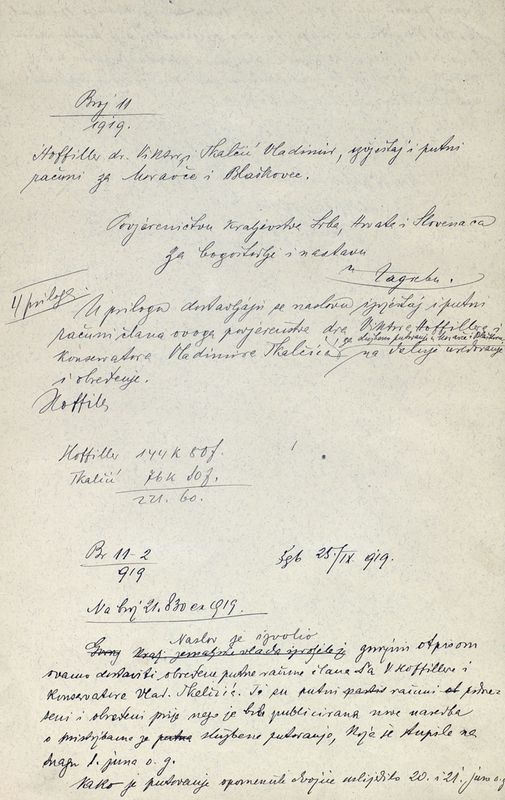 Broj 11
1919.
Hoffiller dr. Viktor i Tkalčić Vladimir, izvještaj i putni
računi za Moravče i Blaškovec.
Povjereničtvu Kraljevstva Srba, Hrvata i Slovenaca
za bogoštovlje i nastavu
u Zagrebu.
4 priloga.
U prilogu dostavljaju se naslovu izvještaj i putni
računi člana ovoga povjerenstva dra Viktora Hoffillera i
za službeno putovanje u Moravče i Blaškovec
konservatora Vladimira Tkalčića na daljnje uredovanje
i obređenje.
Hoffiller
Hoffiller 144 K 80 f.
Tkalčić 76 K 80 f.
221. 60.
Br 11-2
919
Zgb 25/IX 919.
Na broj 21.830 ex 1919.
Naslov je izvolio
Kraj. zemaljska vlada izvoljela gornjim otpisom
ovamo dostaviti obređene putne račune člana Dra V Hoffillera i
konservatora Vlad. Tkalčića. Ti su putni računi
i obređeni prije nego je bila publicirana nova naredba
o pristojbama za službeno putovanje, koja je stupila na
snagu 1. juna o. g.
Kako je putovanje spomenute dvojice uslijedilo 20. i 21. juna o. g.